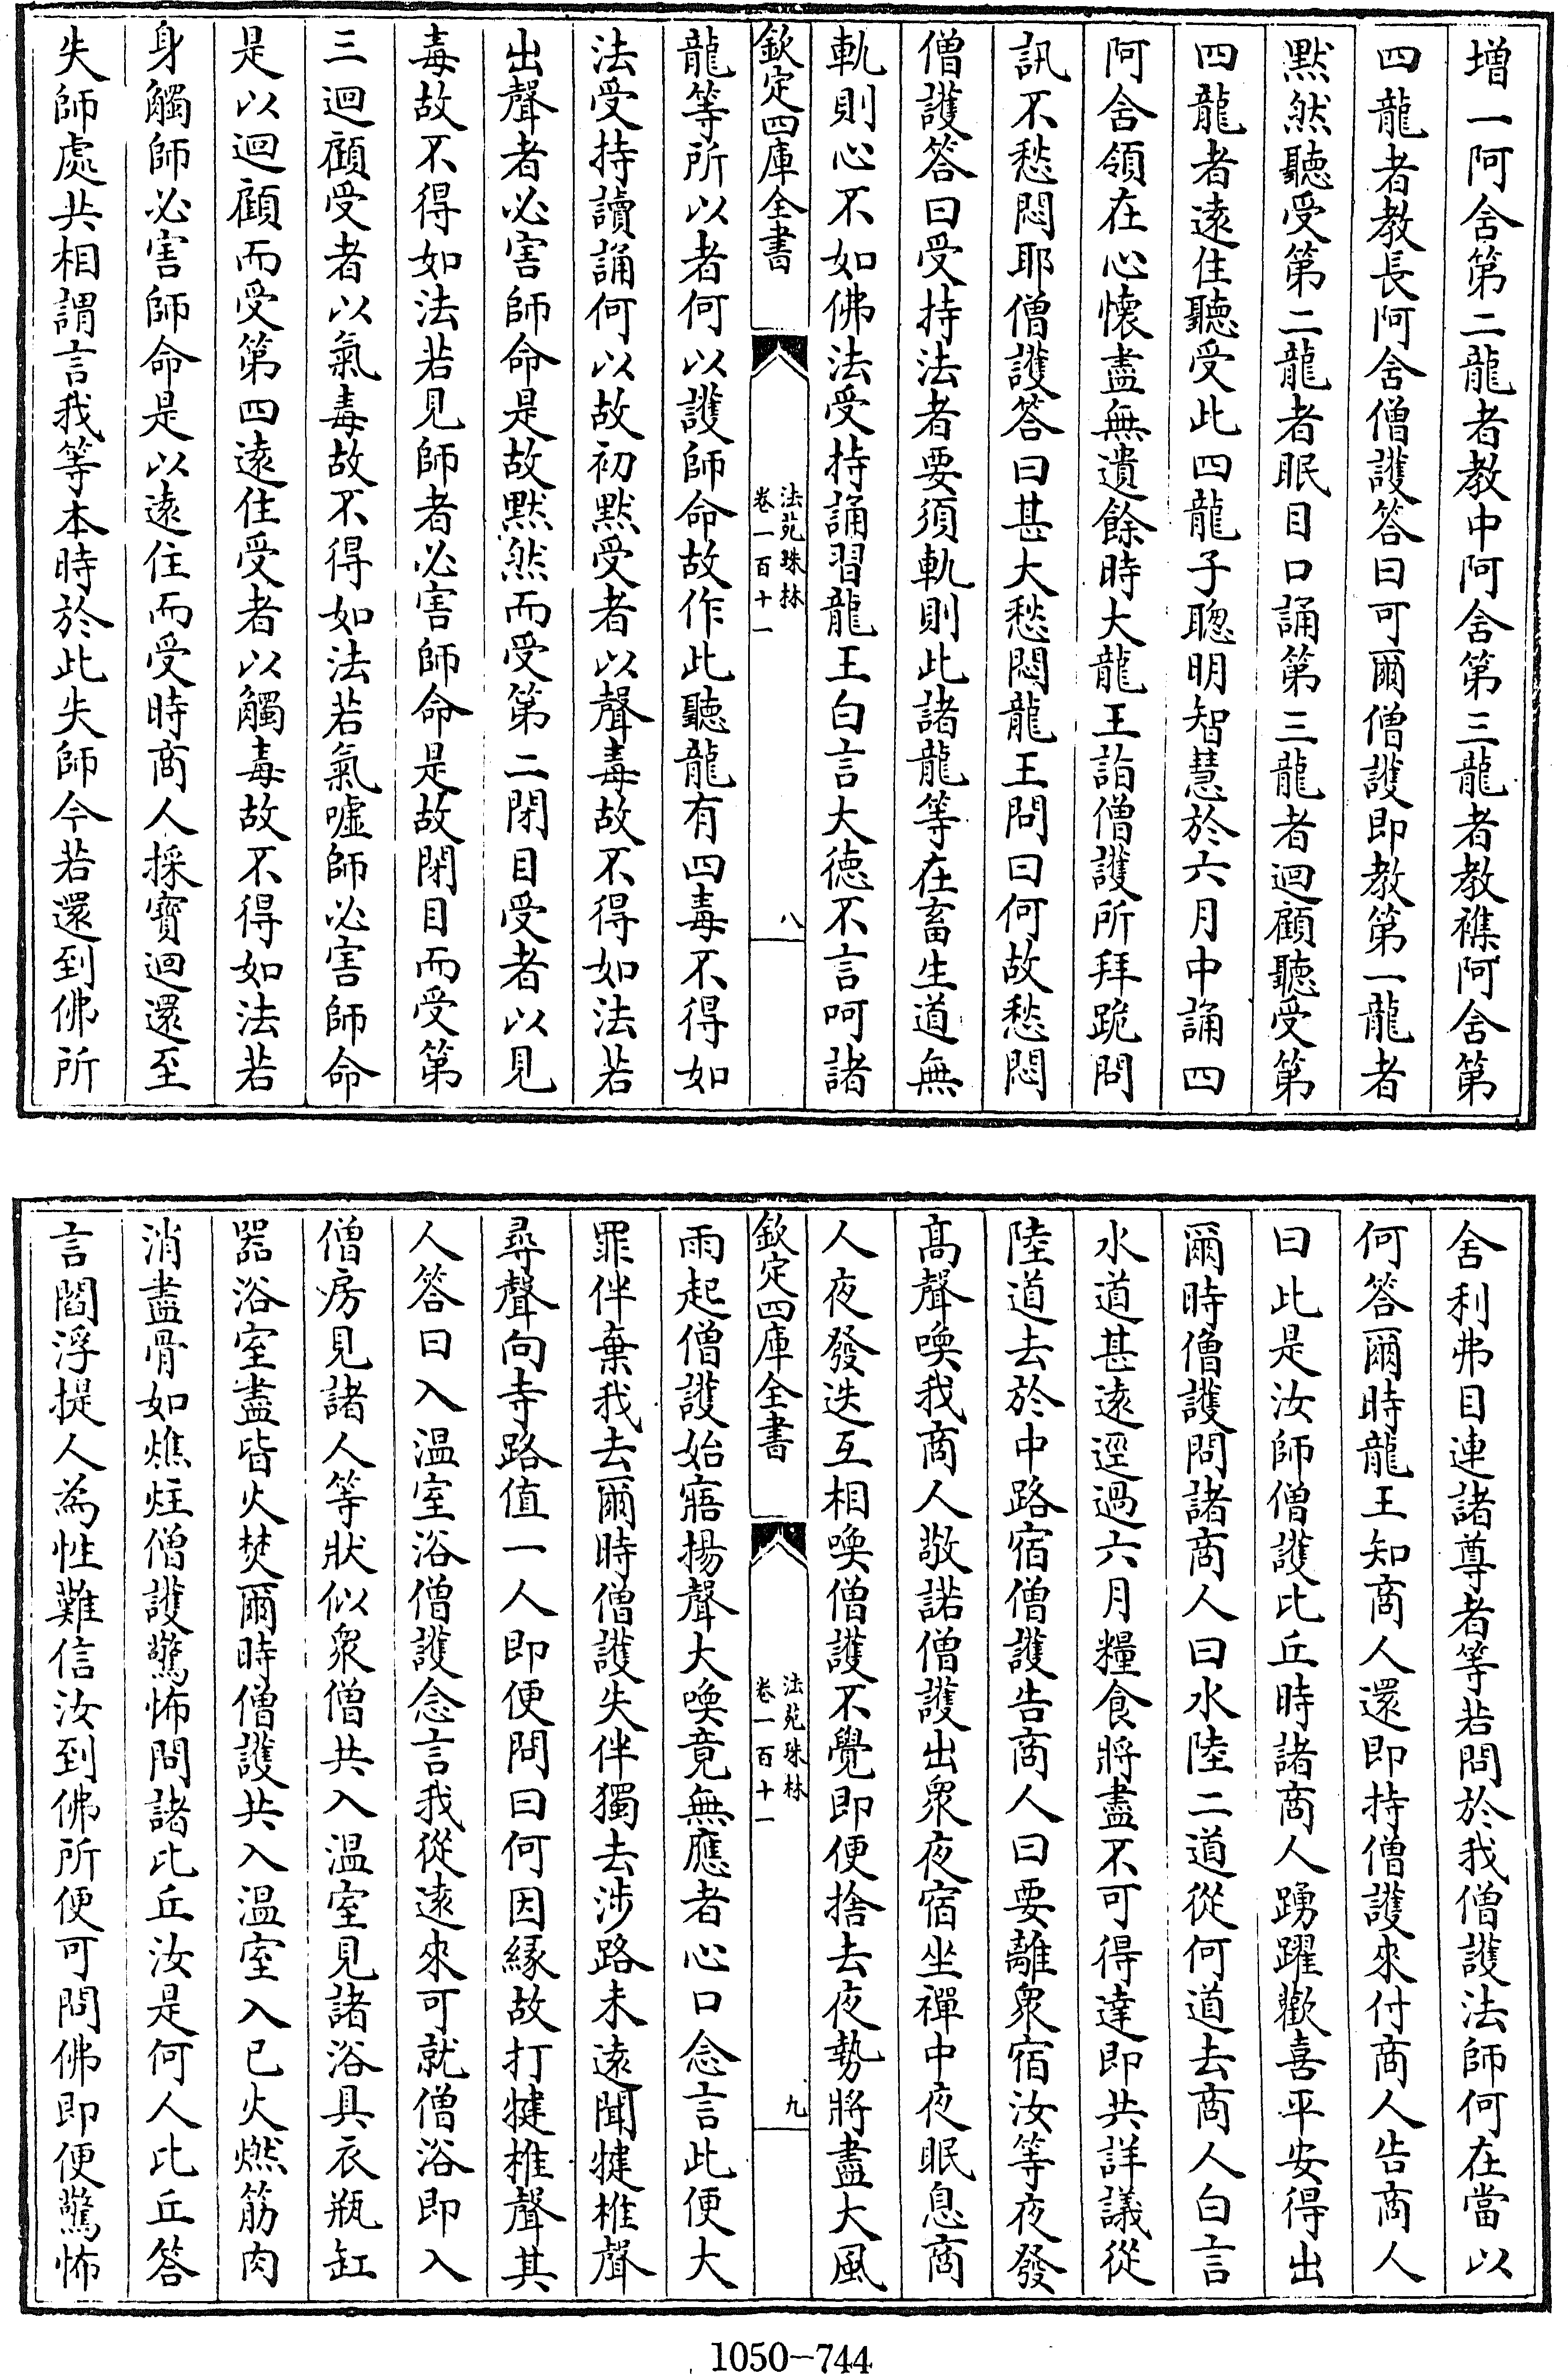 增一阿舍第二龍者教中阿舍第三龍者教襍阿舍第
四龍者教長阿舍僧護答曰可爾僧護即教第一龍者
黙然聽受第二龍者眠目口誦第三龍者迴顧聽受第
四龍者逺住聽受此四龍子聰明智慧於六月中誦四
阿舍領在心懐盡無遺餘時大龍王詣僧護所拜跪問
訊不愁悶耶僧護答曰甚大愁悶龍王問曰何故愁悶
僧護答曰受持法者要須軌則此諸龍等在畜生道無
軌則心不如佛法受持誦習龍王白言大徳不言呵諸
欽定四庫全書
法苑珠林
卷一百十一
八
龍等所以者何以護師命故作此聽龍有四毒不得如
法受持讀誦何以故初黙受者以聲毒故不得如法若
出聲者必害師命是故黙然而受第二閉目受者以見
毒故不得如法若見師者必害師命是故閉目而受第
三迴顧受者以氣毒故不得如法若氣噓師必害師命
是以迴顧而受第四逺住受者以觸毒故不得如法若
身觸師必害師命是以逺住而受時商人採寳迴還至
失師處共相謂言我等本時於此失師今若還到佛所
舍利弗目連諸尊者等若問於我僧護法師何在當以
何答爾時龍王知商人還即持僧護來付商人告商人
曰此是汝師僧護比丘時諸商人踴躍歡喜平安得出
爾時僧護問諸商人曰水陸二道從何道去商人白言
水道甚逺逕過六月糧食將盡不可得達即共詳議從
陸道去於中路宿僧護告商人曰要離衆宿汝等夜發
髙聲喚我商人敬諾僧護出衆夜宿坐禪中夜眠息商
人夜發迭互相喚僧護不覺即便捨去夜勢將盡大風
欽定四庫全書
法苑珠林
卷一百十一
九
雨起僧護始寤揚聲大喚竟無應者心口念言此便大
罪伴棄我去爾時僧護失伴獨去渉路未逺聞犍椎聲
尋聲向寺路值一人即便問曰何因緣故打犍椎聲其
人答曰入温室浴僧護念言我從逺來可就僧浴即入
僧房見諸人等狀似衆僧共入温室見諸浴具衣瓶缸
器浴室盡皆火焚爾時僧護共入温室入已火燃筋肉
消盡骨如燋炷僧護驚怖問諸比丘汝是何人比丘答
言閻浮提人為性難信汝到佛所便可問佛即便驚怖
1050-744